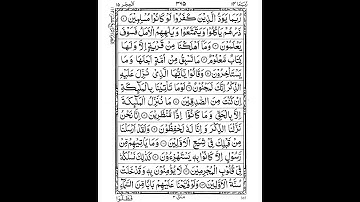 رُبَمَا ١٤ ٣٧٥ الْحِجْر ١٥
رُبَمَا يَوَدُّ الَّذِيْنَ كَفَرُوْا لَوْ كَانُوْا مُسْلِمِيْنَ
ذَرْهُمْ يَاْكُلُوْا وَيَتَمَتَّعُوْا وَيُلْهِهِمُ الْاَمَلُ فَسَوْفَ
يَعْلَمُوْنَ وَمَآ اَهْلَكْنَا مِنْ قَرْيَةٍ اِلَّا وَلَهَا
كِتَابٌ مَّعْلُوْمٌ مَا تَسْبِقُ مِنْ اُمَّةٍ اَجَلَهَا وَمَا
يَسْتَاْخِرُوْنَ وَقَالُوْا يٰٓاَيُّهَا الَّذِيْ نُزِّلَ عَلَيْهِ
الذِّكْرُ اِنَّكَ لَمَجْنُوْنٌ لَوْمَا تَاْتِيْنَا بِالْمَلٰٓئِكَةِ
اِنْ كُنْتَ مِنَ الصّٰدِقِيْنَ مَا نُنَزِّلُ الْمَلٰٓئِكَةَ
اِلَّا بِالْحَقِّ وَمَا كَانُوْٓا اِذًا مُّنْظَرِيْنَ اِنَّا نَحْنُ
نَزَّلْنَا الذِّكْرَ وَاِنَّا لَهٗ لَحٰفِظُوْنَ وَلَقَدْ اَرْسَلْنَا
مِنْ قَبْلِكَ فِيْ شِيَعِ الْاَوَّلِيْنَ وَمَا يَاْتِيْهِمْ مِّنْ
رَّسُوْلٍ اِلَّا كَانُوْا بِهٖ يَسْتَهْزِءُوْنَ كَذٰلِكَ نَسْلُكُهٗ
فِيْ قُلُوْبِ الْمُجْرِمِيْنَ لَا يُؤْمِنُوْنَ بِهٖ وَقَدْ خَلَتْ
سُنَّةُ الْاَوَّلِيْنَ وَلَوْ فَتَحْنَا عَلَيْهِمْ بَابًا مِّنَ السَّمَآءِ
فَظَلُّوْا